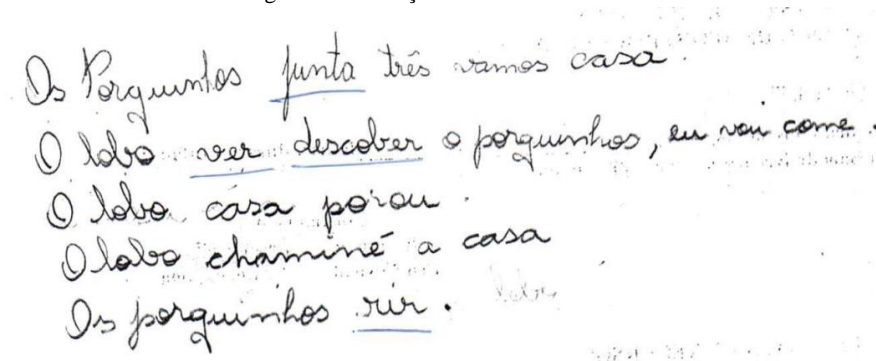 Os Porquinhos junta três vamos casa.
O lobo ver descober o porquinhos, eu vai come.
O lobo casa porou.
O lobo chaminé a casa
Os porquinhos rir.